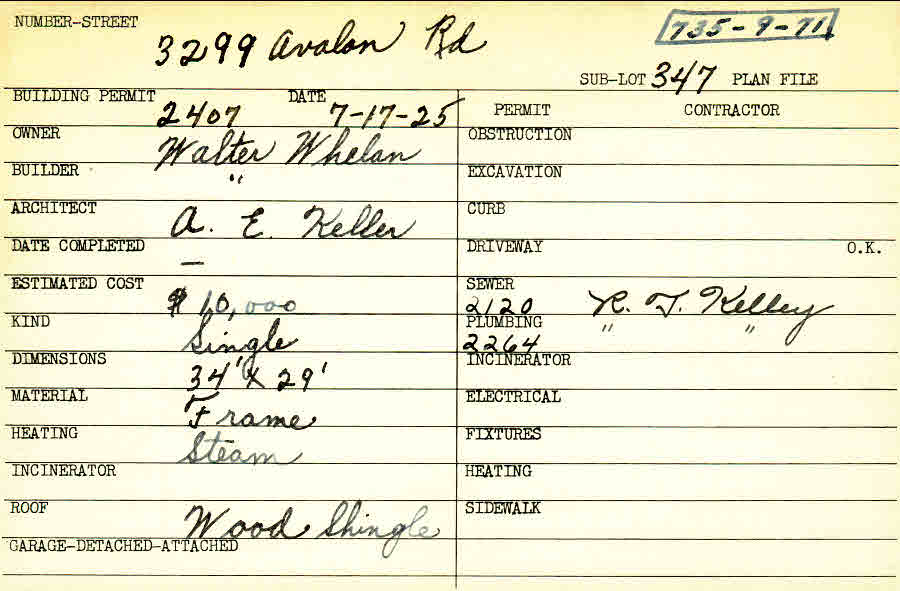 NUMBER-STREET
3299 Avalon Rd
735-9-71
SUB-LOT 347 PLAN FILE
BUILDING PERMIT 2407 DATE 7-17-25
PERMIT CONTRACTOR
OWNER Walter Whelan
OBSTRUCTION
BUILDER "
EXCAVATION
ARCHITECT A. E. Keller
CURB
DATE COMPLETED —
DRIVEWAY O.K.
ESTIMATED COST $10,000
SEWER 2120 R. T. Kelley
KIND Single
PLUMBING 2264 " "
DIMENSIONS 34' x 29'
INCINERATOR
MATERIAL Frame
ELECTRICAL
HEATING Steam
FIXTURES
INCINERATOR
HEATING
ROOF Wood Shingle
SIDEWALK
GARAGE-DETACHED-ATTACHED